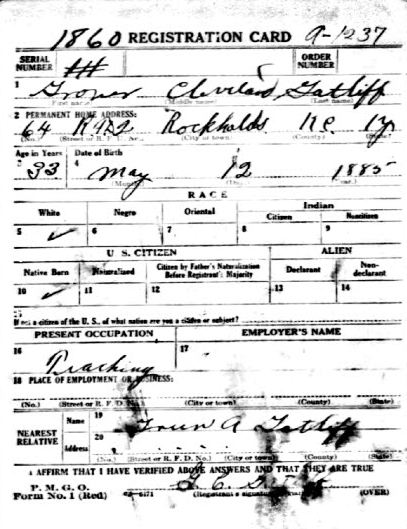 1860 REGISTRATION CARD A-1237
SERIAL NUMBER
ORDER NUMBER
1 Grover Cleveland Gatliff
First name (Middle name) (Last name)
2 PERMANENT HOME ADDRESS:
64 Rockholds Ky
(No.) (Street or R. F. D. No.) (City or town) (County) (State)
Age in Years Date of Birth
33 4 May 12 1885
(Month) (Day) (Year)
RACE
White Negro Oriental Indian
Citizen Noncitizen
5 ✓ 6 7 8 9
U. S. CITIZEN ALIEN
Native Born Naturalized Citizen by Father's Naturalization Before Registrant's Majority Declarant Non-declarant
10 ✓ 11 12 13 14
If not a citizen of the U. S., of what nation are you a citizen or subject?
PRESENT OCCUPATION EMPLOYER'S NAME
16 17
Teaching
18 PLACE OF EMPLOYMENT OR BUSINESS:
(No.) (Street or R. F. D. No.) (City or town) (County) (State)
NEAREST RELATIVE
Name 19 A Gatliff
Address 20
(No.) (Street or R. F. D. No.) (City or town) (County) (State)
I AFFIRM THAT I HAVE VERIFIED ABOVE ANSWERS AND THAT THEY ARE TRUE
P. M. G. O.
Form No. 1 (Red) (Registrant's signature) (OVER)